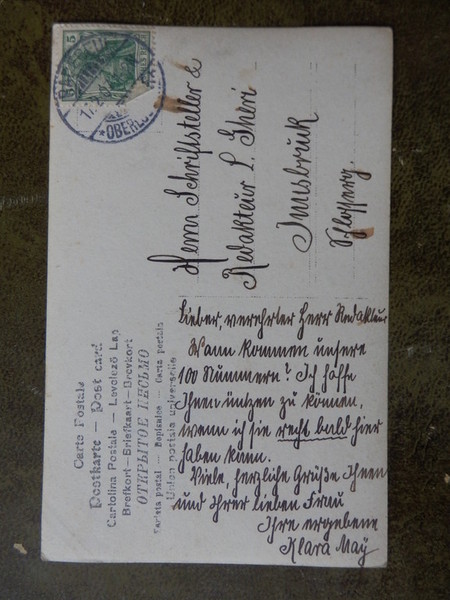 Carte Postale
Postkarte – Post card
Cartolina Postale – Levelező Lap
Brefkort – Briefkaart – Brevkort
ОТКРЫТОЕ ПИСЬМО
Tarjeta postal – Dopisnice – Carta postala
Union postale universelle
5
OBERLÖ
Herrn Schriftsteller &
Redakteur L. Gheri
Innsbruck
Schlosserg.
Lieber, verehrter Herr Redakteur
Wann kommen unsere
100 Nummern? Ich hoffe
Ihnen nützen zu können,
wenn ich sie recht bald hier
haben kann.
Viele, herzliche Grüße Ihnen
und Ihrer lieben Frau
Ihre ergebene
Klara May